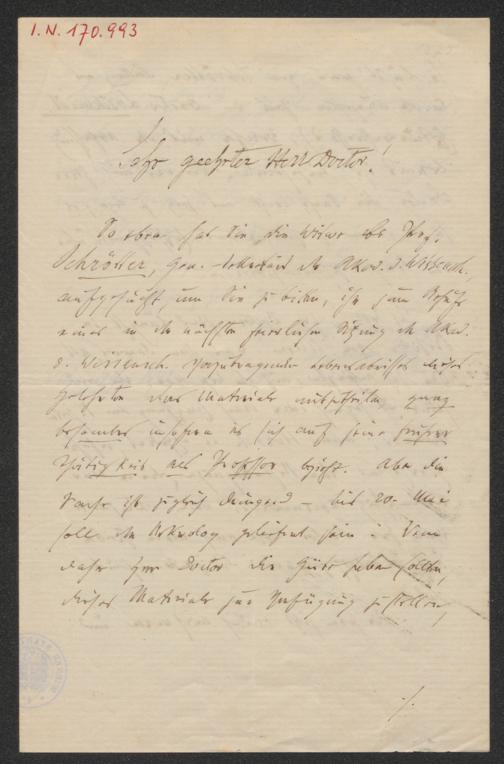 I.N. 170.993
Sehr geehrter Herr Doctor!
So eben hat Sie die Witwe des Prof.
Schrötter, Gen.-Sekretärs der Akad. d. Wissensch.
aufgesucht, um Sie zu bitten, ihr zum Behufe
eines in der nächsten feierlichen Sitzung der Akad.
d. Wissensch. vorzutragenden Lebensabrisses dieses
Gelehrten das Materiale mitzutheilen ganz
besonders insofern es sich auf seine früher
Thätigkeit als Professor bezieht. Aber die
Sache ist zugleich dringend – bis 20. Mai
soll der Nekrolog geliefert sein. Wenn
daher Herr Doctor die Güte haben sollten,
dieses Materiale zur Verfügung zu stellen,
./.